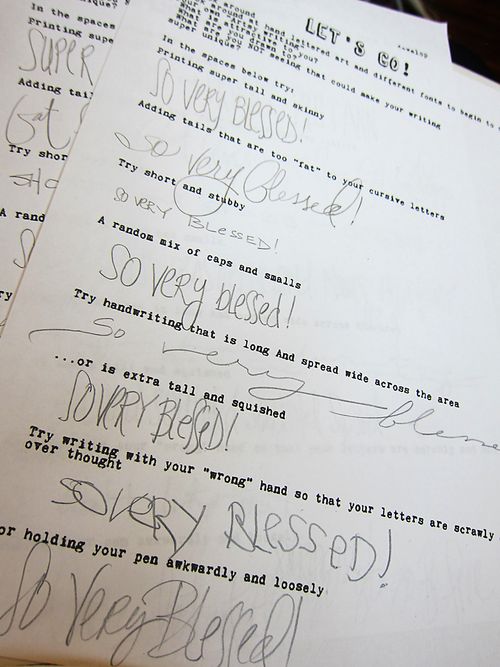 LET'S GO!
hand lettered art and different fonts to begin to
seeing that could make your writing
super unique?
In the spaces below try:
Printing super tall and skinny
SO VERY BLESSED!
Adding tails that are too "fat" to your cursive letters
So very blessed!
Try short and stubby
SO VERY BLESSED!
A random mix of caps and smalls
SO VERY blessed!
Try handwriting that is long And spread wide across the area
So very
...or is extra tall and squished
SO VERY BLESSED!
Try writing with your "wrong" hand so that your letters are scrawly
over thought
SO VERY BLESSED!
or holding your pen awkwardly and loosely
So Very Blessed!
In the spaces
Printing supe
SUPER
Adding tail
fat
Try shor
SHO
A rand